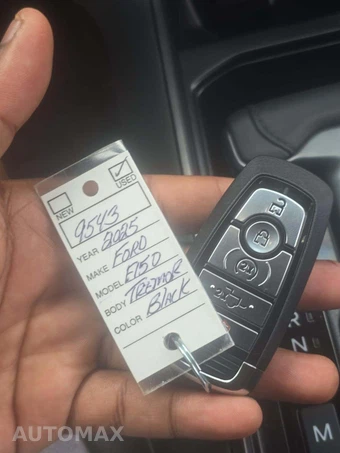 NEW
✓ USED
9543
YEAR 2025
MAKE FORD
MODEL F150
BODY TREMOR
COLOR BLACK
R
N
M
AUTOMAX